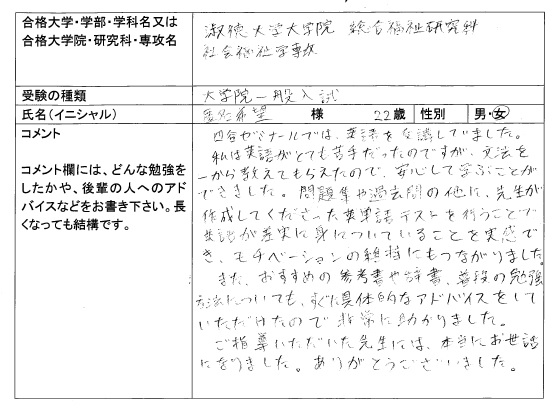 合格大学・学部・学科名又は
合格大学院・研究科・専攻名
淑徳大学大学院 総合福祉研究科
社会福祉学専攻
受験の種類
大学院一般入試
氏名(イニシャル)
匿名希望 様 22歳 性別 男・女
コメント
コメント欄には、どんな勉強を
したかや、後輩の人へのアド
バイスなどをお書き下さい。長
くなっても結構です。
四谷ゼミナールでは、英語を受講していました。
私は英語がとても苦手だったのですが、文法を
一から教えてもらえたので、安心して学ぶことが
できました。問題集や過去問の他に、先生が
作成してくださった英単語テストを行うことで
英語が着実に身についていることを実感で
き、モチベーションの維持にもつながりました。
また、おすすめの参考書や辞書、普段の勉強
方法についても、すぐに具体的なアドバイスをして
いただけたので非常に助かりました。
ご指導いただいた先生には、本当にお世話
になりました。ありがとうございました。